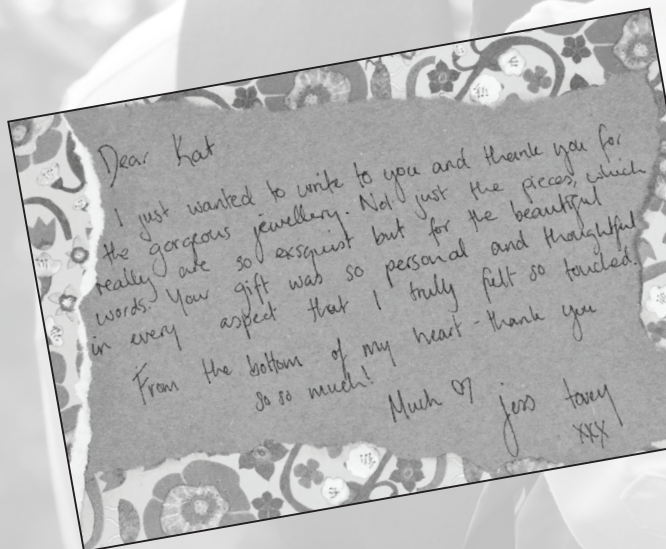 Dear Kat
I just wanted to write to you and thank you for
the gorgeous jewellery. Not just the pieces, which
really are so exsquist but for the beautiful
words. Your gift was so personal and thoughtful
in every aspect that I truly felt so touched.
From the bottom of my heart - thank you
so so much!
Much ♡ jess tovey
xxx